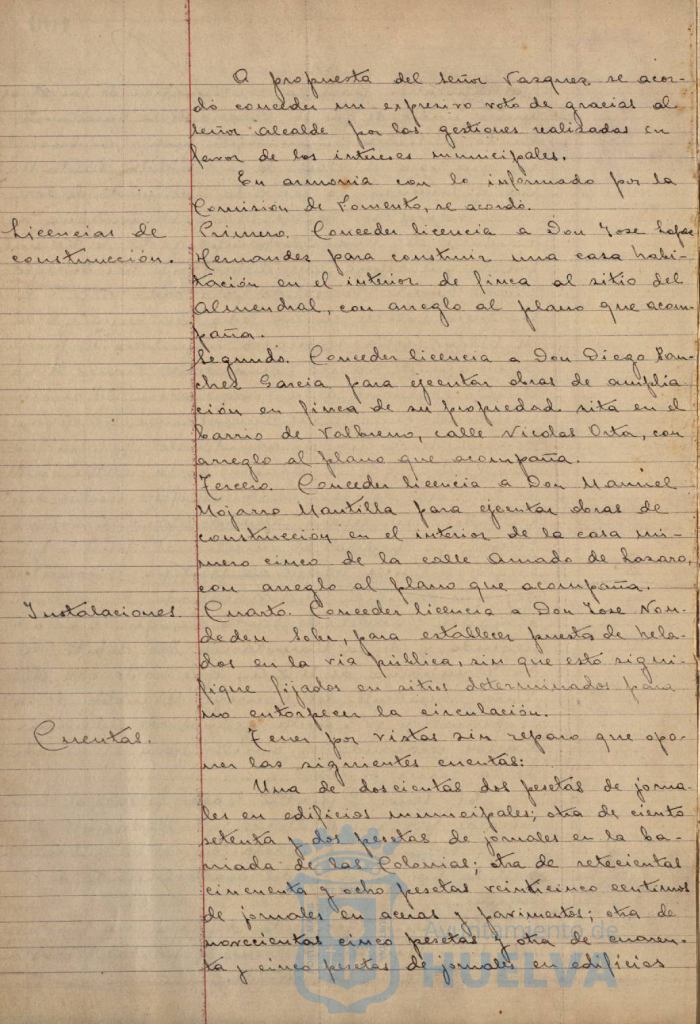 A propuesta del señor Vazquez se acor-
dó conceder un expresivo voto de gracias al
señor alcalde por las gestiones realizadas en
favor de los intereses municipales.
En armonia con lo informado por la
Comision de Fomento, se acordó.
Licencias de
construcción.
Primero. Conceder licencia a Don Jose Lopez
Hernandez para construir una casa habi-
tación en el interior de finca al sitio del
Almendral, con arreglo al plano que acom-
paña.
Segundo. Conceder licencia a Don Diego San-
chez Garcia para ejecutar obras de amplia
ción en finca de su propiedad sita en el
barrio de Valbueno, calle Nicolas Orta, con
arreglo al plano que acompaña.
Tercero. Conceder licencia a Don Manuel
Mojarro Mantilla para ejecutar obras de
construccion en el interior de la casa nú-
mero cinco de la calle Amado de Lazaro,
con arreglo al plano que acompaña.
Instalaciones
Cuarto. Conceder licencia a Don Jose Non-
dedeu para establecer puesto de hela-
dos en la via pública, sin que esto signi-
fique fijados en sitios determinados para
no entorpecer la circulación.
Cuentas.
Tener por vistas sin reparo que opo-
ner las siguientes cuentas:
Una de doscientas dos pesetas de jorna-
les en edificios municipales; otra de ciento
setenta y dos pesetas de jornales en la ba-
rriada de las Colonias; otra de setecientas
cincuenta y ocho pesetas veinticinco centimos
de jornales en aceras y pavimentos; otra de
novecientas cinco pesetas y otra de cuaren-
ta y cinco pesetas de jornales en edificios
Ayuntamiento de
HUELVA